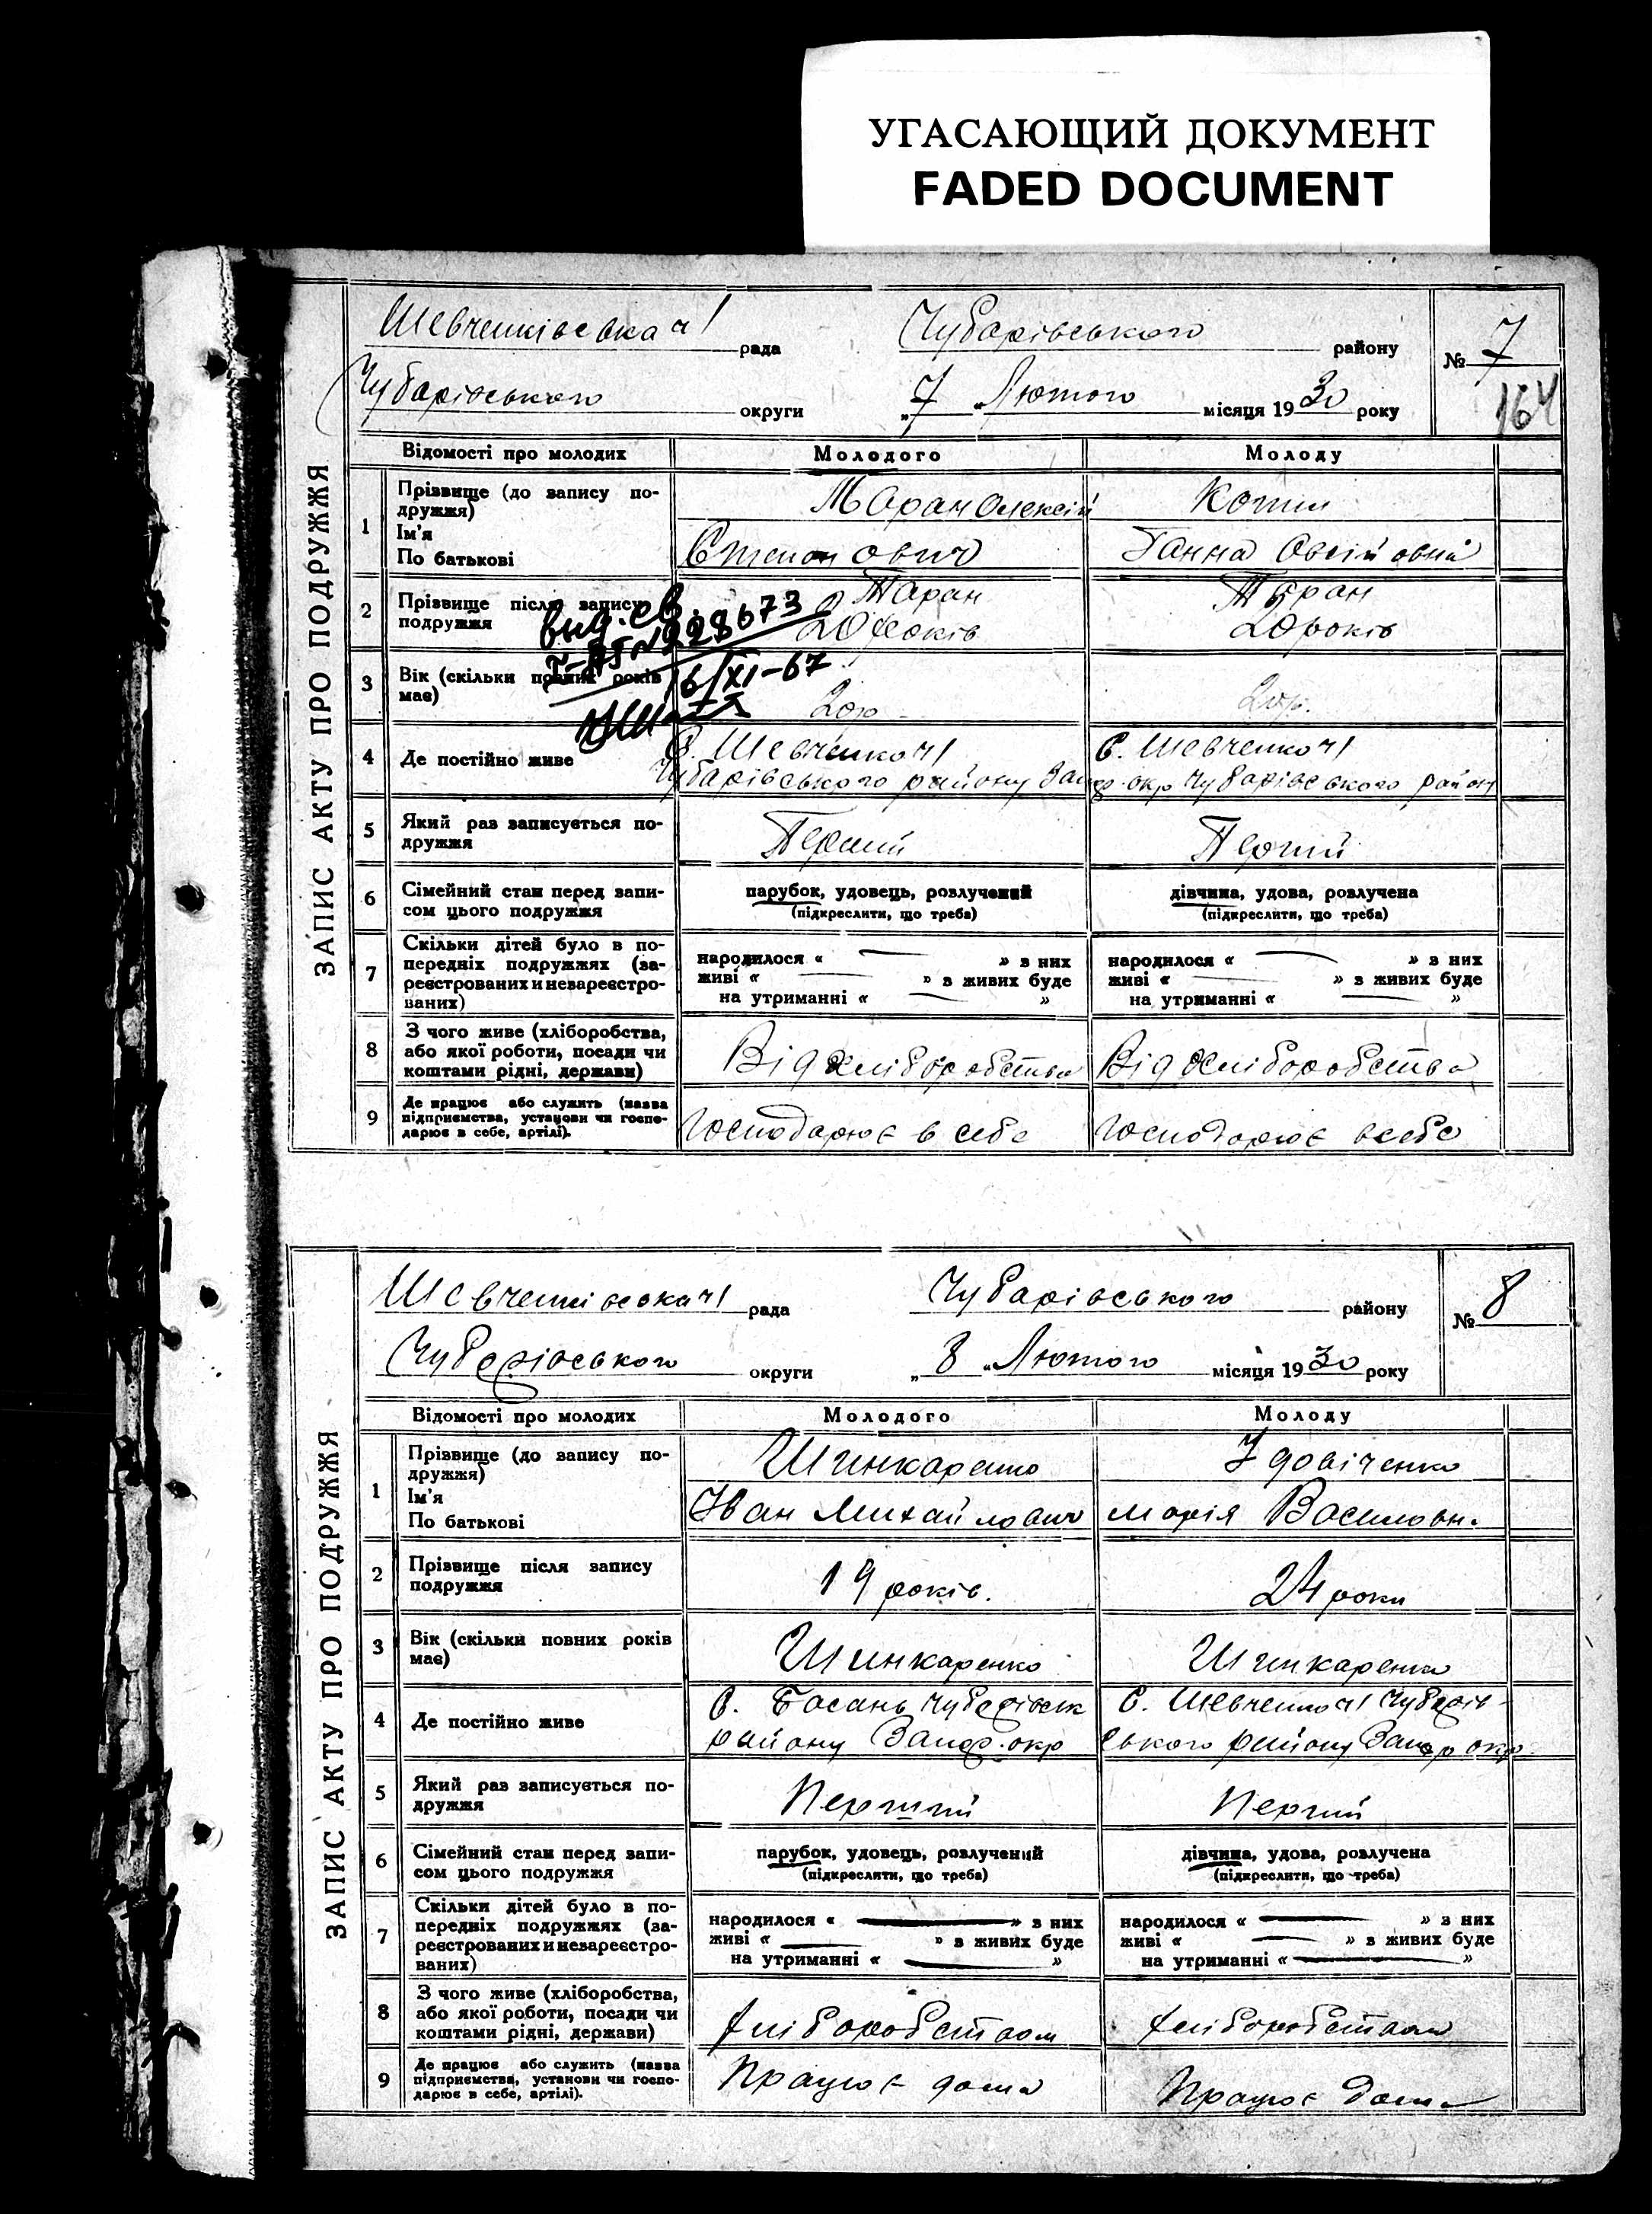 УГАСАЮЩИЙ ДОКУМЕНТ
FADED DOCUMENT
ЗАПИС АКТУ ПРО ПОДРУЖЖЯ
Шевченківська ч1 рада Чубарівського району № 7
Чубарівського округи „7 Лютого місяця 1930 року
164
Відомості про молодих Молодого Молоду
1 Прізвище (до запису по-
дружжя)
Ім'я
По батькові
Таран Олексій
Степанович
Ганна Овсійовна
2 Прізвище після запису
подружжя
Таран
20 років
Таран
20 років
вид. св.
928673
16/XI-67
3 Вік (скільки повних років
має)
20р. 20р.
4 Де постійно живе
С. Шевченко ч1
Чубарівського району Запор. окр
С. Шевченко ч1
Чубарівського району
5 Який раз записується по-
дружжя
Перший Перший
6 Сімейний стан перед запи-
сом цього подружжя
парубок, удовець, розлучений
(підкреслити, що треба)
дівчина, удова, розлучена
(підкреслити, що треба)
7 Скільки дітей було в по-
передніх подружжях (за-
реєстрованих и незареєстро-
ваних)
народилося « — » з них
живі « — » з живих буде
на утриманні « — »
народилося « — » з них
живі « — » з живих буде
на утриманні « — »
8 З чого живе (хліборобства,
або якої роботи, посади чи
коштами рідні, держави)
Від хліборобства Від хліборобства
9 Де працює або служить (назва
підприємства, установи чи госпо-
дарює в себе, артілі).
Господарює в себе Господарює в себе
ЗАПИС АКТУ ПРО ПОДРУЖЖЯ
Шевченківська ч1 рада Чубарівського району № 8
Чубарівського округи „8 „Лютого місяця 1930 року
Відомості про молодих Молодого Молоду
1 Прізвище (до запису по-
дружжя)
Ім'я
По батькові
Шинкаренко
Іван Михайлович
Здовіченко
Марія Василовн.
2 Прізвище після запису
подружжя
19 років. 24 роки
3 Вік (скільки повних років
має)
Шинкаренко Шинкаренко
4 Де постійно живе
С. Басань Чубарівськ
району Запор. окр
С. Шевченко ч1 Чубарів-
ського району Запор окр.
5 Який раз записується по-
дружжя
Перший Перший
6 Сімейний стан перед запи-
сом цього подружжя
парубок, удовець, розлучений
(підкреслити, що треба)
дівчина, удова, розлучена
(підкреслити, що треба)
7 Скільки дітей було в по-
передніх подружжях (за-
реєстрованих и незареєстро-
ваних)
народилося « — » з них
живі « — » з живих буде
на утриманні « — »
народилося « — » з них
живі « — » з живих буде
на утриманні « — »
8 З чого живе (хліборобства,
або якої роботи, посади чи
коштами рідні, держави)
хліборобством хліборобством
9 Де працює або служить (назва
підприємства, установи чи госпо-
дарює в себе, артілі).
Працює дома Працює дома